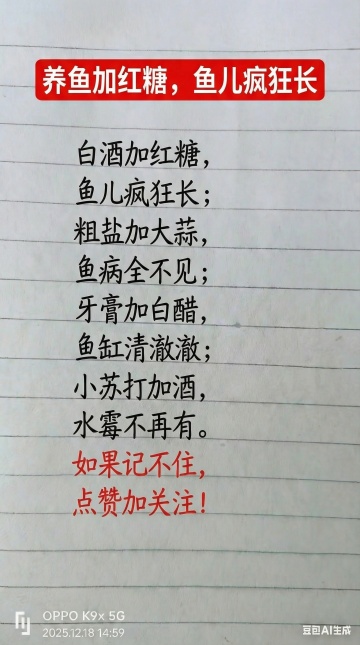 养鱼加红糖，鱼儿疯狂长
白酒加红糖，
鱼儿疯狂长；
粗盐加大蒜，
鱼病全不见；
牙膏加白醋，
鱼缸清澈澈；
小苏打加酒，
水霉不再有。
如果记不住，
点赞加关注！
OPPO K9x 5G
2025.12.18 14:59
豆包AI生成